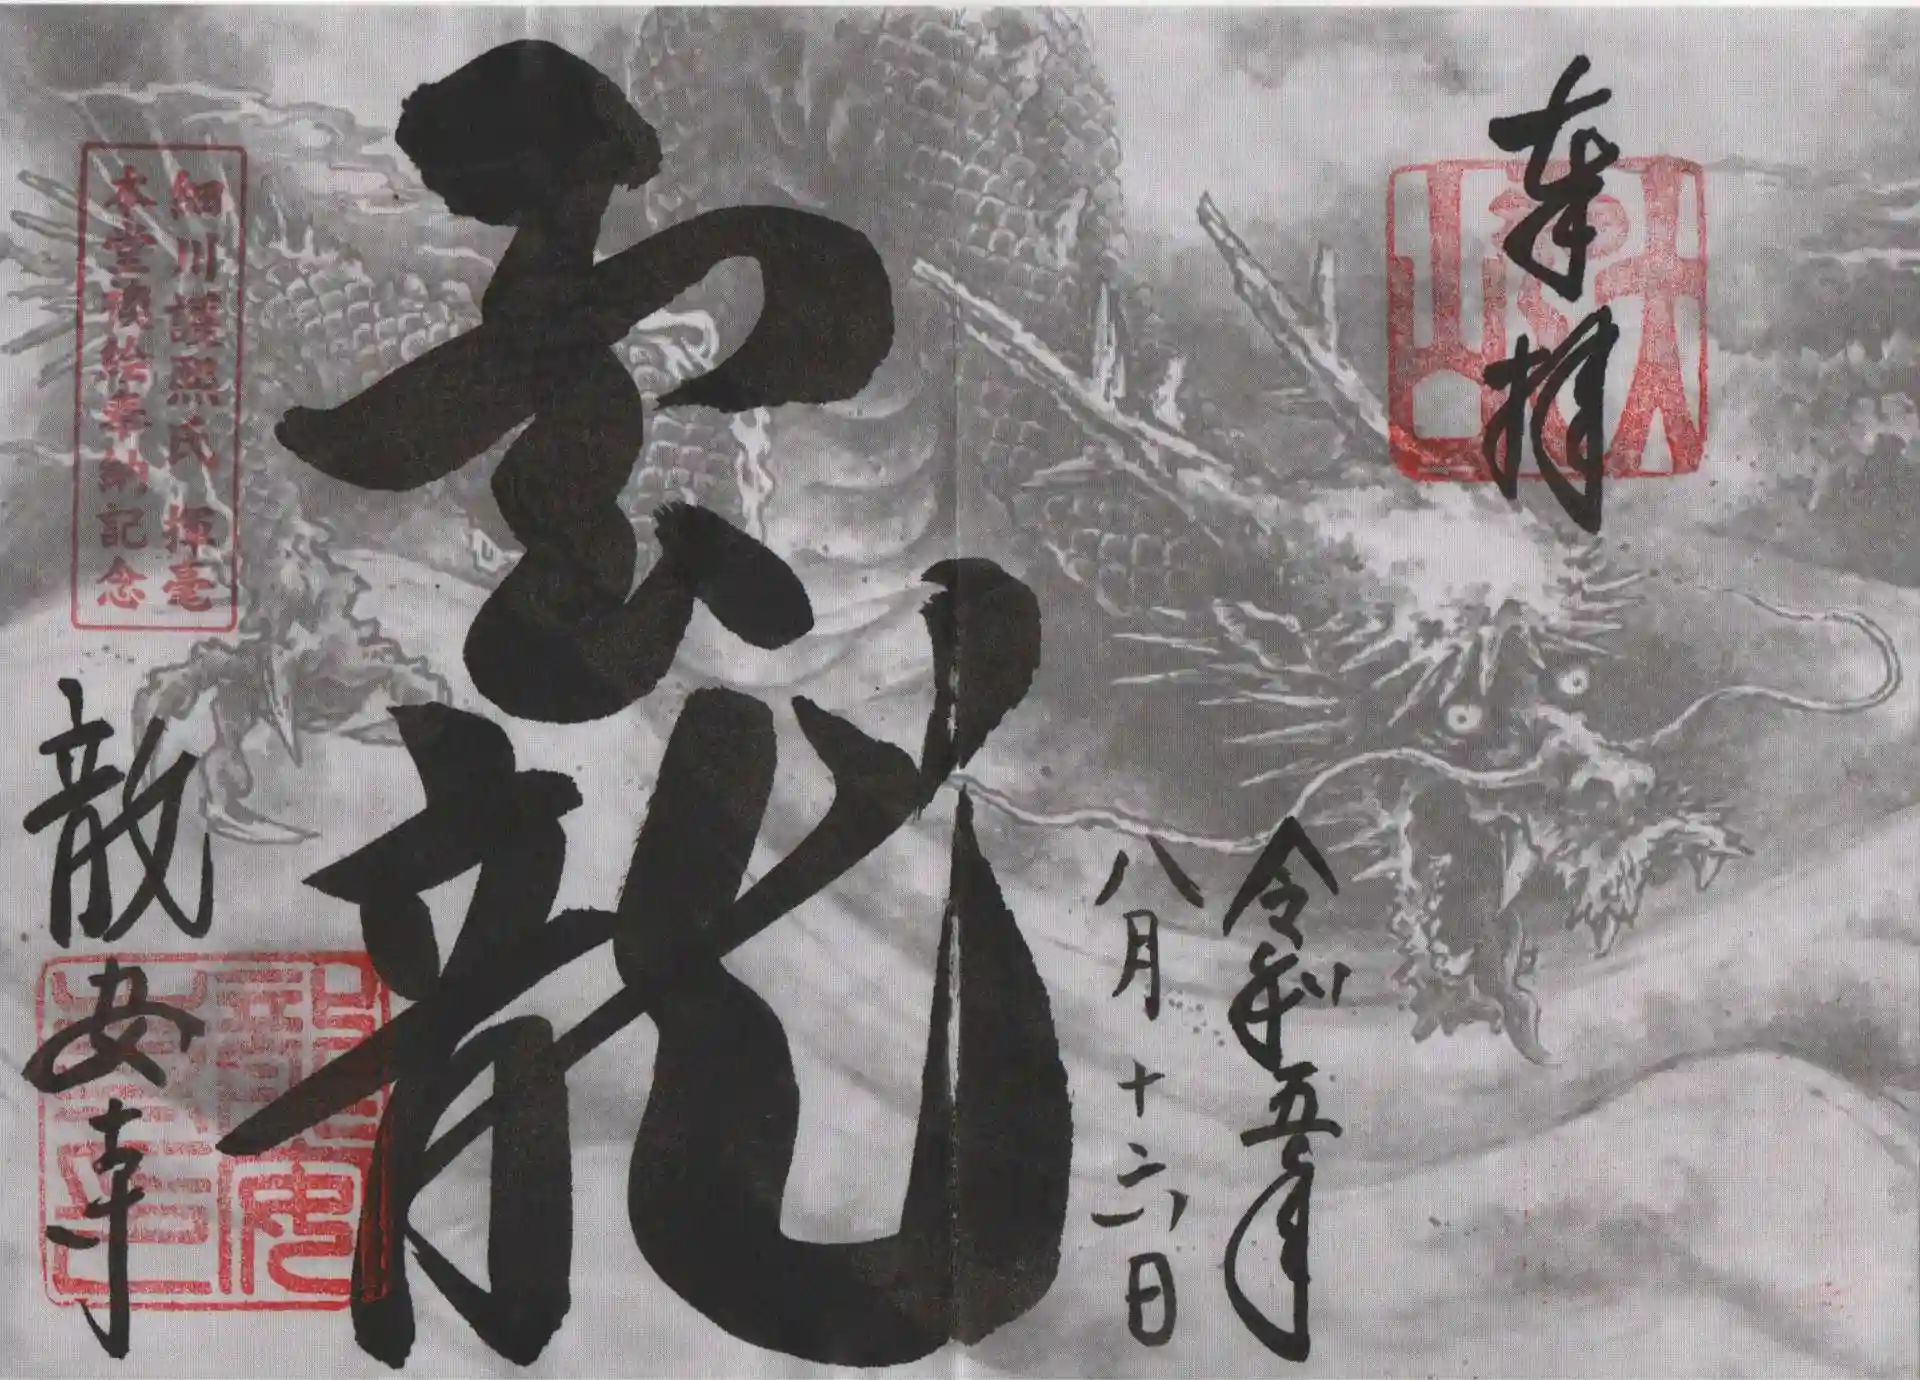 奉拝
大雲山
令和五年
八月十六日
雲龍
細川護熙氏揮毫
本堂襖絵奉納記念
龍安寺
龍安
寺印